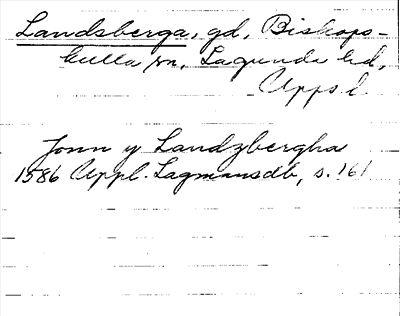 Landsberga, gd, Biskops-
kulla sn, Lagunda hd,
Upps l.
Jonn y Landzbergha
1586 Uppl. Lagmansdb, s. 161